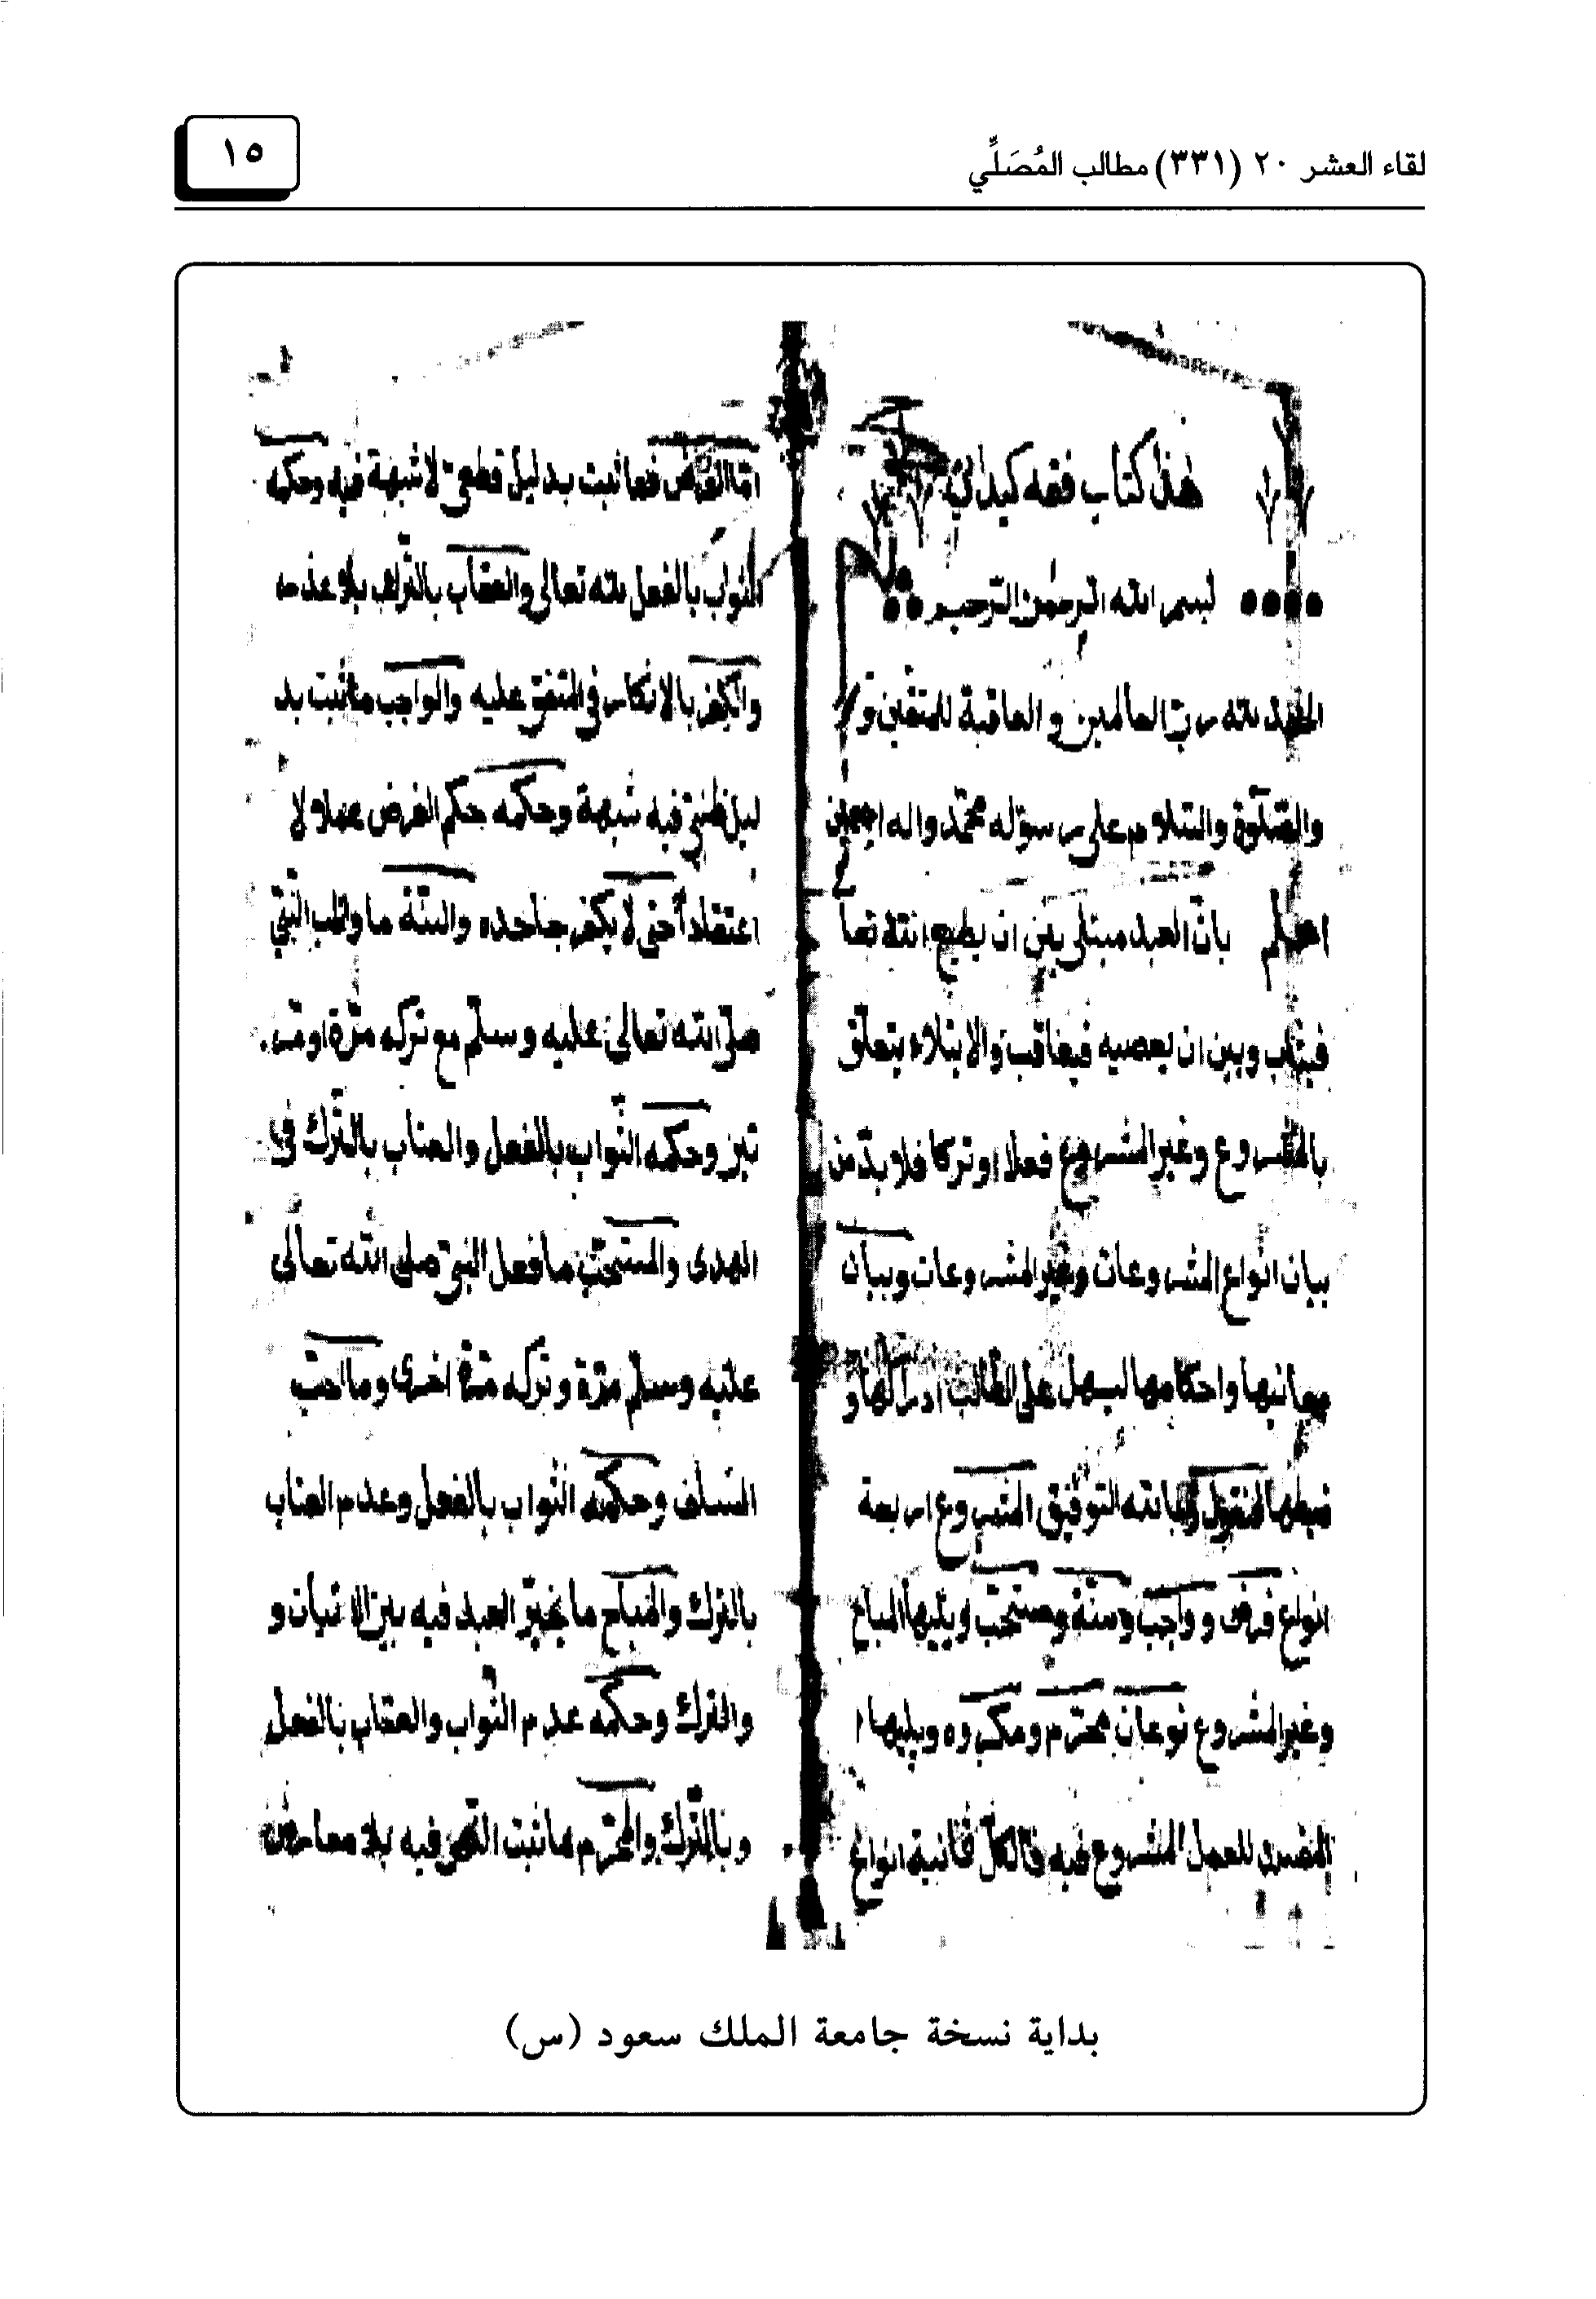 لقاء العشر ٢٠ (٣٣١) مطالب المُصَلِّي
١٥
هذا كتاب فقه كيداني
بسم الله الرحمن الرحيم
الحمد لله رب العالمين و العاقبة للمتقين
والصّلوة والسّلام على رسوله محمّد واله اجمعين
اعلم بانّ العبد مبتلى بين ان يطيع الله تعا
فيثاب وبين ان يعصيه فيعاقب والابتلاء يتعلّق
بالمشروع وغير المشروع فعلا اوتركا فلا بدّ من
بيان انواع المشروعات وغير المشروعات وبيان
معانيها واحكامها ليسهل على الطّالب ادراكها و
ضبطها فنقول وبالله التوفيق المشروع اربعة
انواع فرض و واجب وسنّة ومستحبّ ويليها المباح
وغير المشروع نوعان محرّم ومكروه ويليهما
المفسد للعمل المشروع فيه فالكلّ ثمانية انواع
امّا الفرض فما ثبت بدليل قطعيّ لا شبهة فيه وحكمه
الثواب بالفعل لله تعالى والعقاب بالترك بلا عذر
والكفر بالانكار في المتفق عليه والواجب ما ثبت بد
ليل ظنّيّ فيه شبهة وحكمه حكم الفرض عملا و لا
اعتقادا حتى لا يكفر جاحده والسنّة ما واظب النّبيّ
صلّى الله تعالى عليه وسلّم مع تركه مرّة او مر
تين وحكمه الثّواب بالفعل والعتاب بالتّرك في
الهدى والمستحبّ ما فعل النبيّ صلى الله تعالى
عليه وسلم مرّة و تركه مرّة اخرى وما احبّه
السّلف وحكمه الثّواب بالفعل وعدم العتاب
بالترك والمباح ما يخيّر العبد فيه بين الاتيان و
والترك وحكمه عدم الثّواب والعقاب بالفعل
وبالتّرك والمحرّم ما ثبت النّهى فيه بلا معارض
بداية نسخة جامعة الملك سعود (س)